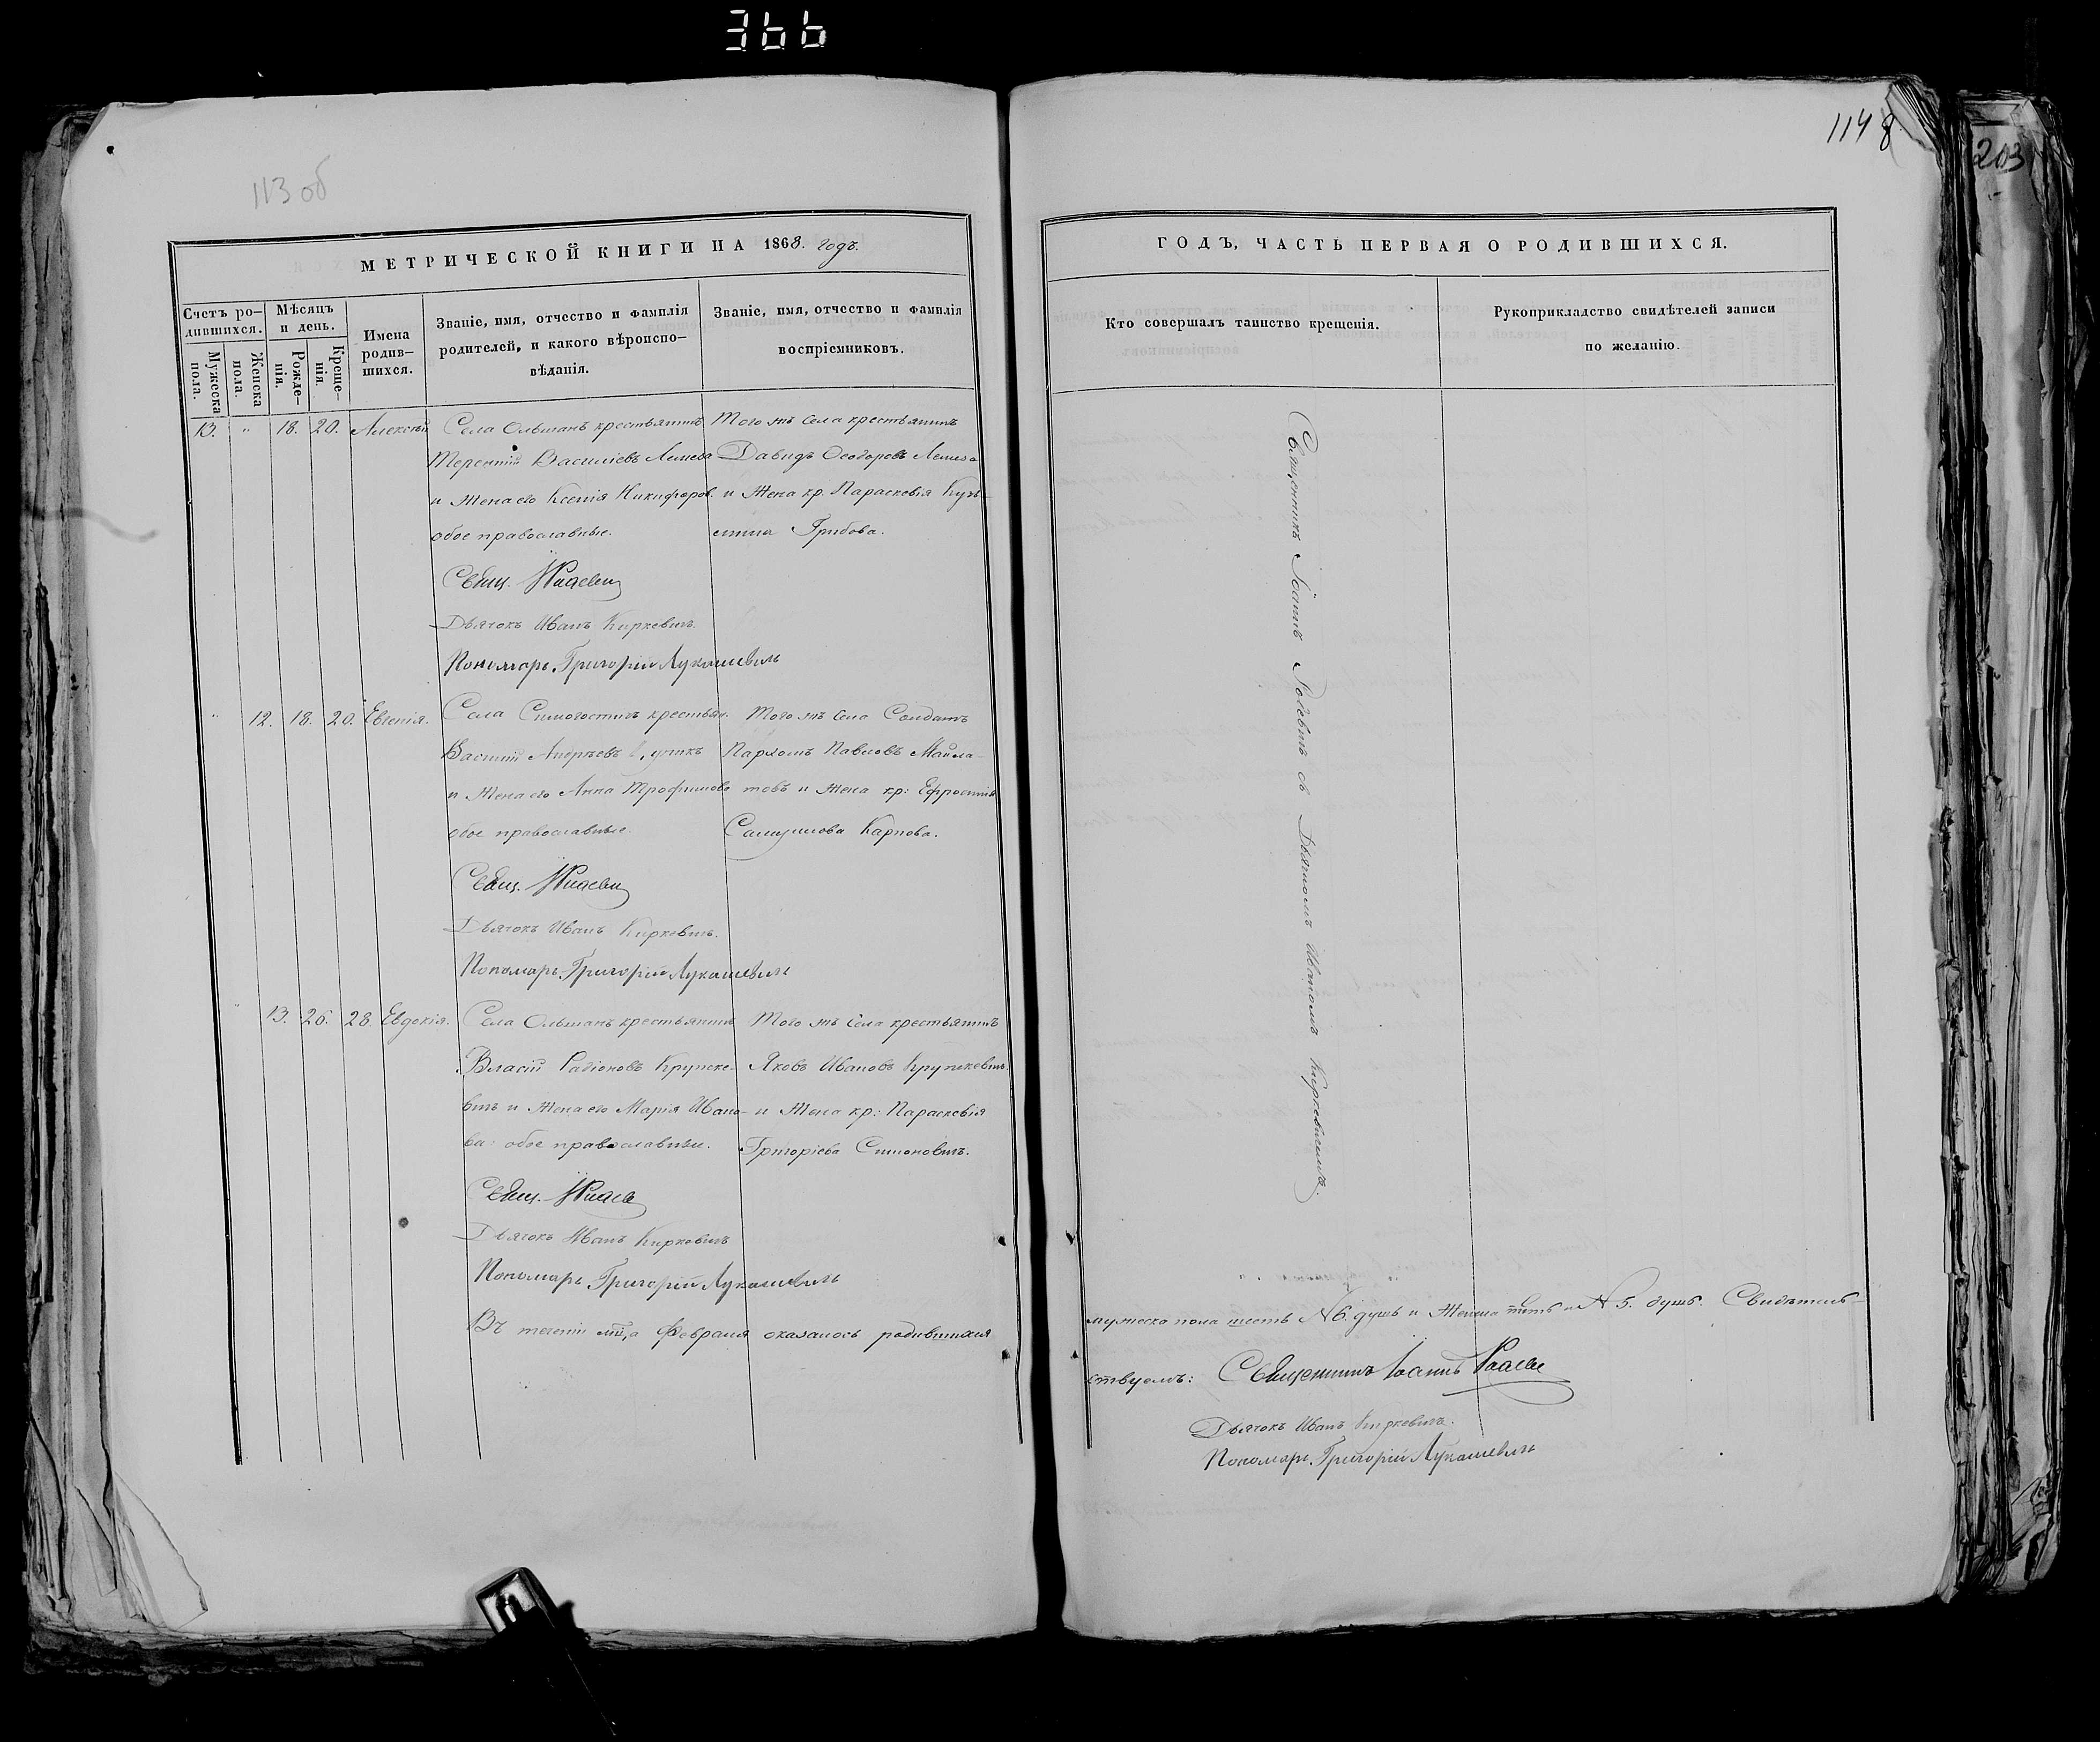 366
113 об
МЕТРИЧЕСКОЙ КНИГИ НА 1868. годъ.
Счетъ ро-
дившихся.
Мужеска
пола.
Женска
пола.
Мѣсяцъ
и день.
Рожде-
нія.
Креще-
нія.
Имена
родив-
шихся.
Званіе, имя, отчество и фамилія
родителей, и какого вѣроиспо-
вѣданія.
Званіе, имя, отчество и фамилія
воспріемниковъ.
13. " 18. 20. Алексѣй
Села Ольманъ крестьянинъ
Терентій Василіевъ
и жена его Ксенія Никифоров.
обое православные.
Того жъ села крестьянинъ
Давидъ Ѳеодоровъ
и жена кр. Параскевія Кузь-
мина Грибова.
Свящ.
Дьячокъ Иванъ Киркевичъ.
Пономарь Григорій Лукашевичъ
" 12. 18. 20. Евгенія.
Села крестьян.
Василій Андреевъ
и жена его Анна Трофимова
обое православные.
Того жъ села Солдатъ
Пархомъ Павловъ
и жена кр: Ефросинія
Самуилова Карпова.
Свящ.
Дьячокъ Иванъ Киркевичъ.
Пономарь Григорій Лукашевичъ
" 13. 26. 28. Евдокія.
Села Ольманъ крестьянинъ
Власій Радіоновъ Крупке-
вичъ и жена его Марія Ивано-
ва обое православные.
Того жъ села крестьянинъ
Яковъ Ивановъ Крупкевичъ
и жена кр: Параскевія
Григоріева Симоновичъ.
Свящ.
Дьячокъ Иванъ Киркевичъ
Пономарь Григорій Лукашевичъ
Въ теченіи мѣс,а Февраля оказалось родившихся
114
8
203
ГОДЪ, ЧАСТЬ ПЕРВАЯ О РОДИВШИХСЯ.
Кто совершалъ таинство крещенія.
Рукоприкладство свидѣтелей записи
по желанію.
Священникъ Іоаннъ съ Дьячкомъ Иваномъ Киркевичемъ.
мужеска пола шесть №6. душъ и женска пять №5. душъ. Свидѣтель-
ствуемъ: Священникъ Іоаннъ
Дьячокъ Иванъ Киркевичъ.
Пономарь Григорій Лукашевичъ